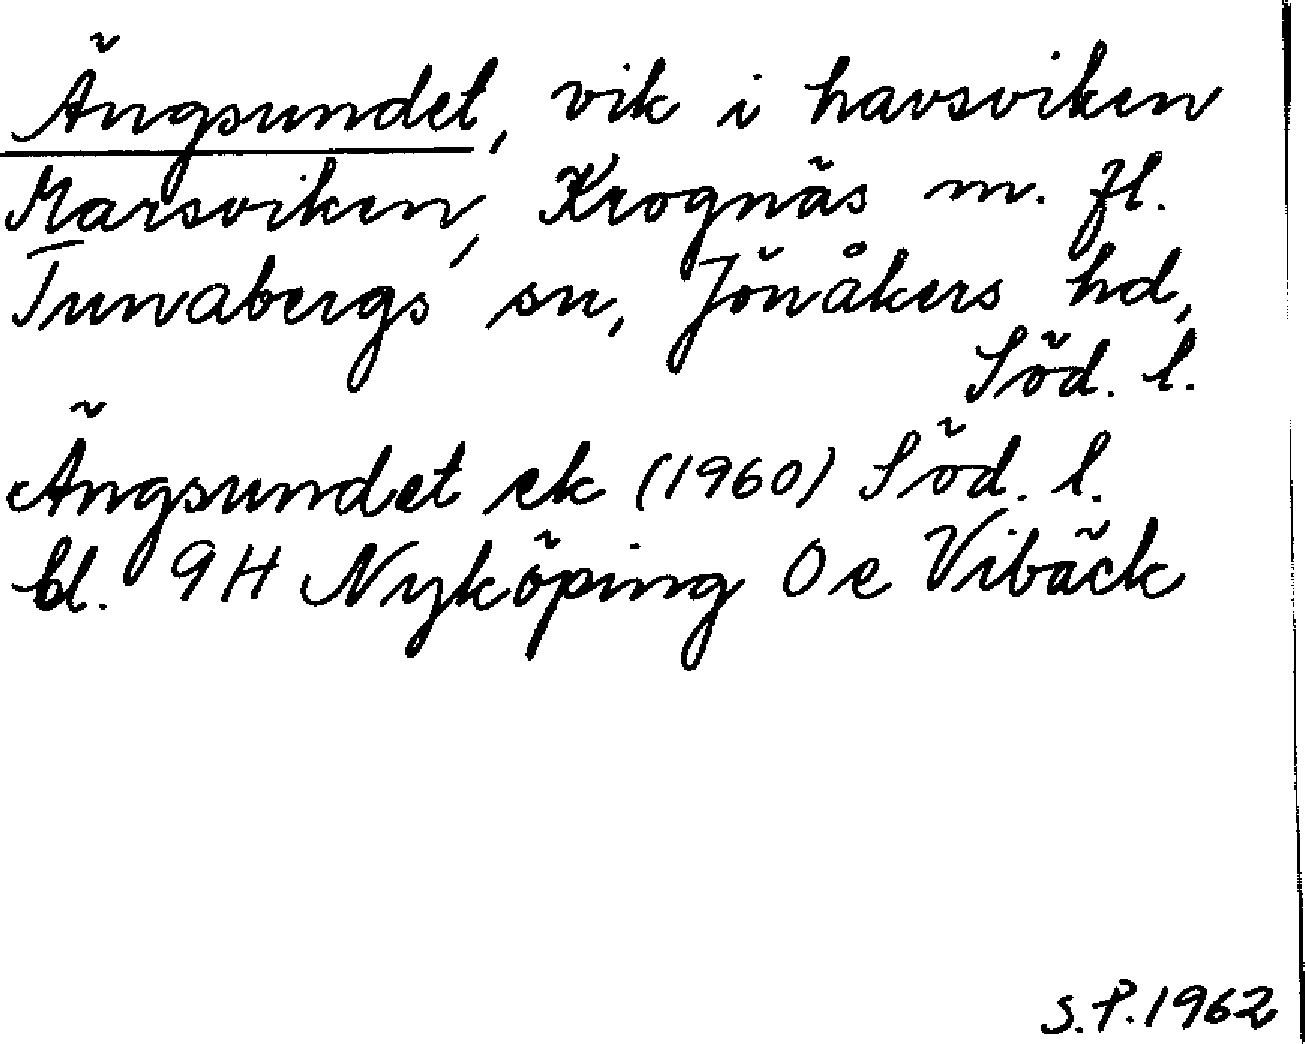 Ängsundet, vik i havsviken
Marsviken, Krognäs m. fl.
Tunabergs sn, Jönåkers hd,
Söd. l.
Ängsundet ek (1960) Söd. l.
bl. 9H Nyköping 0e Vibäck
S.P. 1962